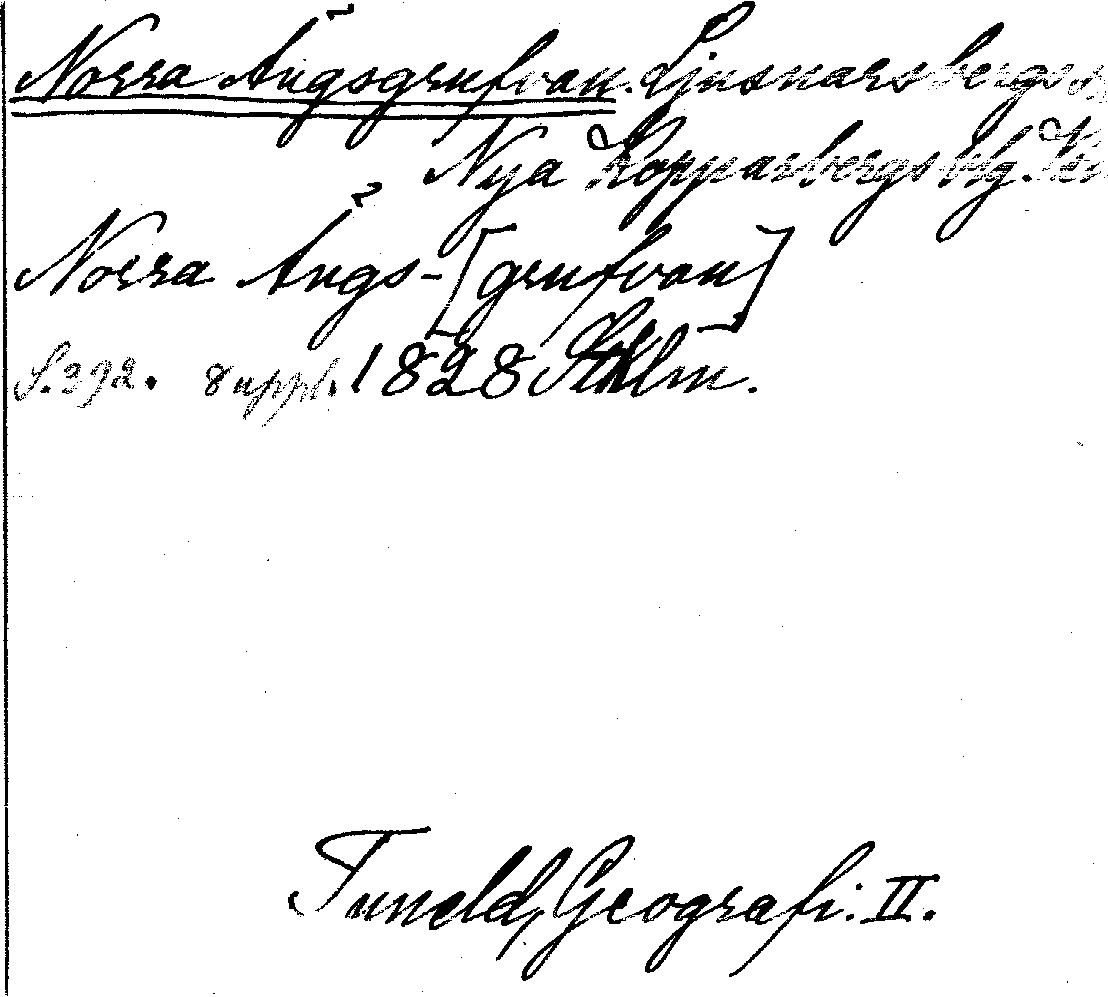 Norra Ängsgrufvan. Ljusnarsbergs
Nya Kopparbergs blg.
Norra Ängs-[grufvan]
S. 392. 8 uppl. 1828 Sthlm.
Tuneld, Geografi. II.